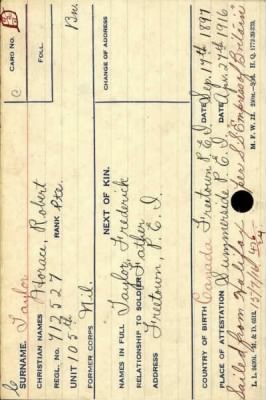 C
CARD NO.
SURNAME. Taylor
FOLL.
CHRISTIAN NAMES Horace, Robert
REGL. NO. 712527 RANK Pte.
UNIT 105th Bn.
FORMER CORPS Nil.
NEXT OF KIN.
CHANGE OF ADDRESS
NAMES IN FULL Taylor, Frederick
RELATIONSHIP TO SOLDIER Father
ADDRESS Freetown, P.E.I.
COUNTRY OF BIRTH Canada Freetown P.E.I. DATE Sep. 17th 1897
PLACE OF ATTESTATION Summerside P.E.I. DATE Apr. 27th 1916
Sailed from Halifax per S.S. Empress of Britain
15/7/16
M. F. W. 22.
H. Q. 1772-39-273.